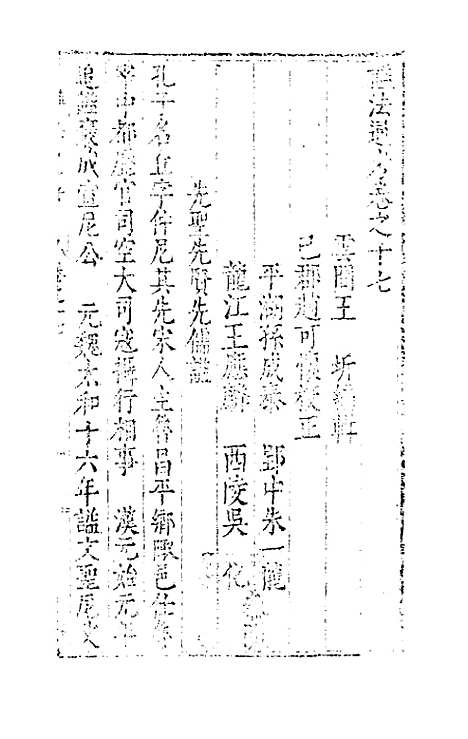 謚法通考卷之十七
雲間王　圻編輯
巴郡趙可懷校正
平湖孫成泰　郢中朱一龍
龍江王應麟　西陵吳　化
先聖先賢先儒謚
孔子名丘字仲尼其先宋人生魯昌平鄉陬邑仕魯
宰中都歷官司空大司寇攝行相事　漢元始元年
追謚褒成宣尼公　元魏太和十六年謚文聖尼父